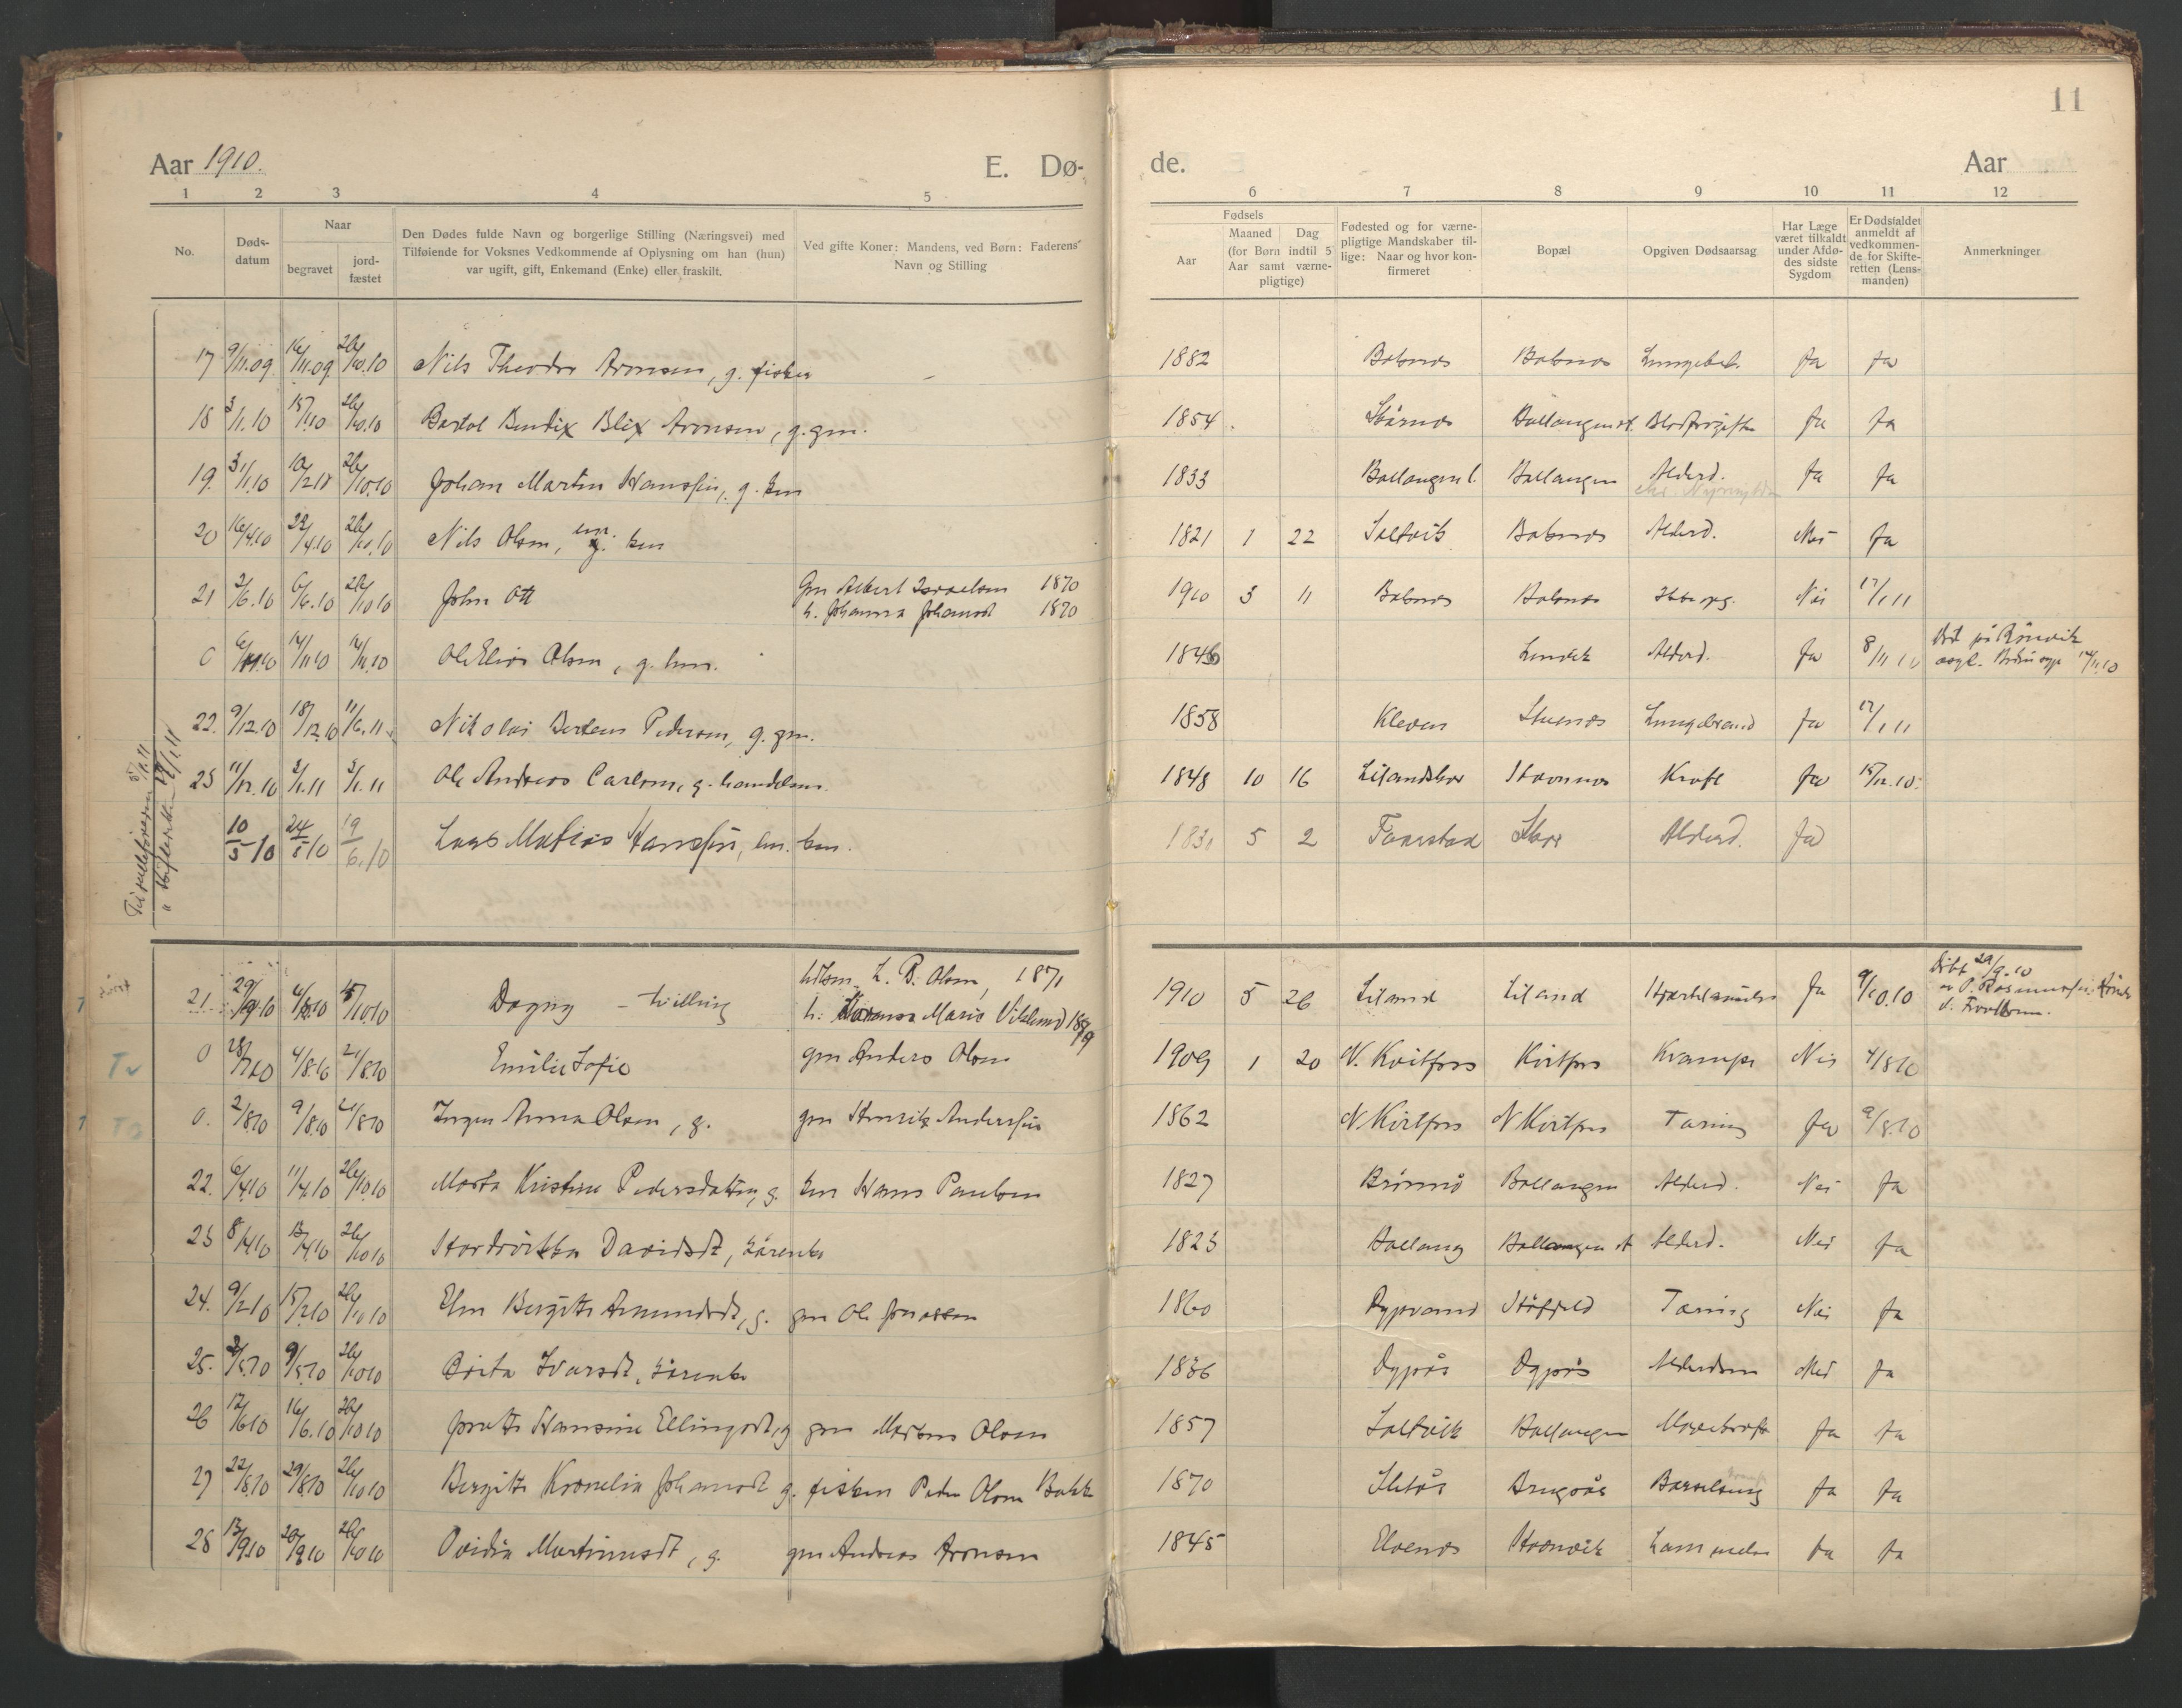 11
Aar 1910. E. Dø- de. Aar
1 2 3 4 5 6 7 8 9 10 11 12
No.
Døds-
datum
Naar
begravet
jord-
fæstet
Den Dødes fulde Navn og borgerlige Stilling (Næringsvei) med
Tilføiende for Voksnes Vedkommende af Oplysning om han (hun)
var ugift, gift, Enkemand (Enke) eller fraskilt.
Ved gifte Koner: Mandens, ved Børn: Faderens
Navn og Stilling
Fødsels
Aar
Maaned Dag
(for Børn indtil 5
Aar samt værne-
pligtige)
Fødested og for værne-
pligtige Mandskaber til-
lige: Naar og hvor kon-
firmeret
Bopæl
Opgiven Dødsaarsag
Har Læge
været tilkaldt
under Afdø-
des sidste
Sygdom
Er Dødsfaldet
anmeldt af
vedkommen-
de for Skifte-
retten (Lens-
manden)
Anmerkninger
17 9/11.09 16/11.09 26/10.10 Nils Theodor Aronsen, g. fisker - 1882 Bobnes Bobnes Lungebet. Ja Ja
18 3/1.10 15/1.10 26/10.10 Bertol Bendix Blix Aronsen, g. gm. 1854 Skårnes Ballangsmt. Blodforgiftn Ja Ja
19. 31/1.10 10/2 10 26/10.10 Johan Martin Hanssen, g. km 1833 Ballangen Ballangen Alderd. Ja Ja
20 16/4.10 22/4.10 26/10.10 Nils Olsen, em. km 1821 1 22 Saltvik Bobnes Alderd. Nei Ja
21 2/6.10 6/6.10 26/10 10 John Ott Gm Albert Israelsen 1870
h. Johanna Johansd 1870 1910 3 11 Bobnes Bobnes Nei 17/1 11
0 6/11.10 14/11 10 14/11.10 Ole Elias Olsen, g. lm. 1846 Lenvik Alderd. Ja 8/11 10 Død på Rönvik
asyl. 14/11.10
22. 9/12.10 18/12.10 11/6.11 Nikolai Berteus Pedersen, g. gm. 1858 Kleven Stuenes Lungebrand Ja 17/1 11
23 11/12.10 3/1.11 3/1.11 Ole Andreas Carlsen, g. handelsm. 1848 10 16 Lilandskar Stavnes Kræft Ja 15/12.10.
10/5 10 24/5 10 19/6.10 Lars Matias Hanssen, em. km. 1831 5 2 Taarstad Skar Alderd. Ja
Til selleföreren 5/1.11
" Skifteretten 17/1 11
21. 29/9.10 4/10 15/10.10 Dagny - tvilling L. B. Olsen, 1871
h: Maria Viklund 1879 1910 5 26 Liland Liland Ja 9/10.10 Döbt 29/9.10
av P. Rasmussen
0 28/7.10 4/8.10 21/8.10 Emilie Sofie gm Anders Olsen 1909 1 20 N. Kvitfors Kvitfors Krampe Nei 4/8 10
0. 2/8.10 9/8.10 21/8 10 Inger Anna Olsen, g. gm Henrik Anderssen 1862 N Kvitfors N Kvitfors Tæring Ja 9/8.10
22. 6/4.10 11/4.10 26/10.10 Marta Kristine Pedersdatter, g. km Hans Paulsen 1827 Brönnö Ballangen Alderd. Nei Ja
23 8/4.10 13/4.10 26/10 10 Davidsdt, kårenke 1823 Ballang Ballangsmt Alderd. Nei Ja
24. 9/2 10 15/2.10 26/10 10 Elen Bergitte Amundsdt, g. gm Ole Jonassen 1860 Dypvand Tæring Nei Ja
25. 9/5.10 26/10 10 Berta Ivarsdt, kårenke 1836 Dypås Dypås Alderdom Nei Ja
26 12/6.10 16/6.10 26/10 10 Hansine Ellingsdt, g gm Martens Olsen 1857 Saltvik Ballangen Mavekræft Ja Ja
27 22/8.10 29/8.10 26/10 10 Bergitte Kornelia Johansdt g. fisker Peder Olsen Bakk 1870 Barselseng Ja Ja
28 13/9.10 20/9.10 26/10 10 Ovidia Martinusdt, g. gm Andreas Aronsen 1845 Elvenes Lammelse Ja Ja